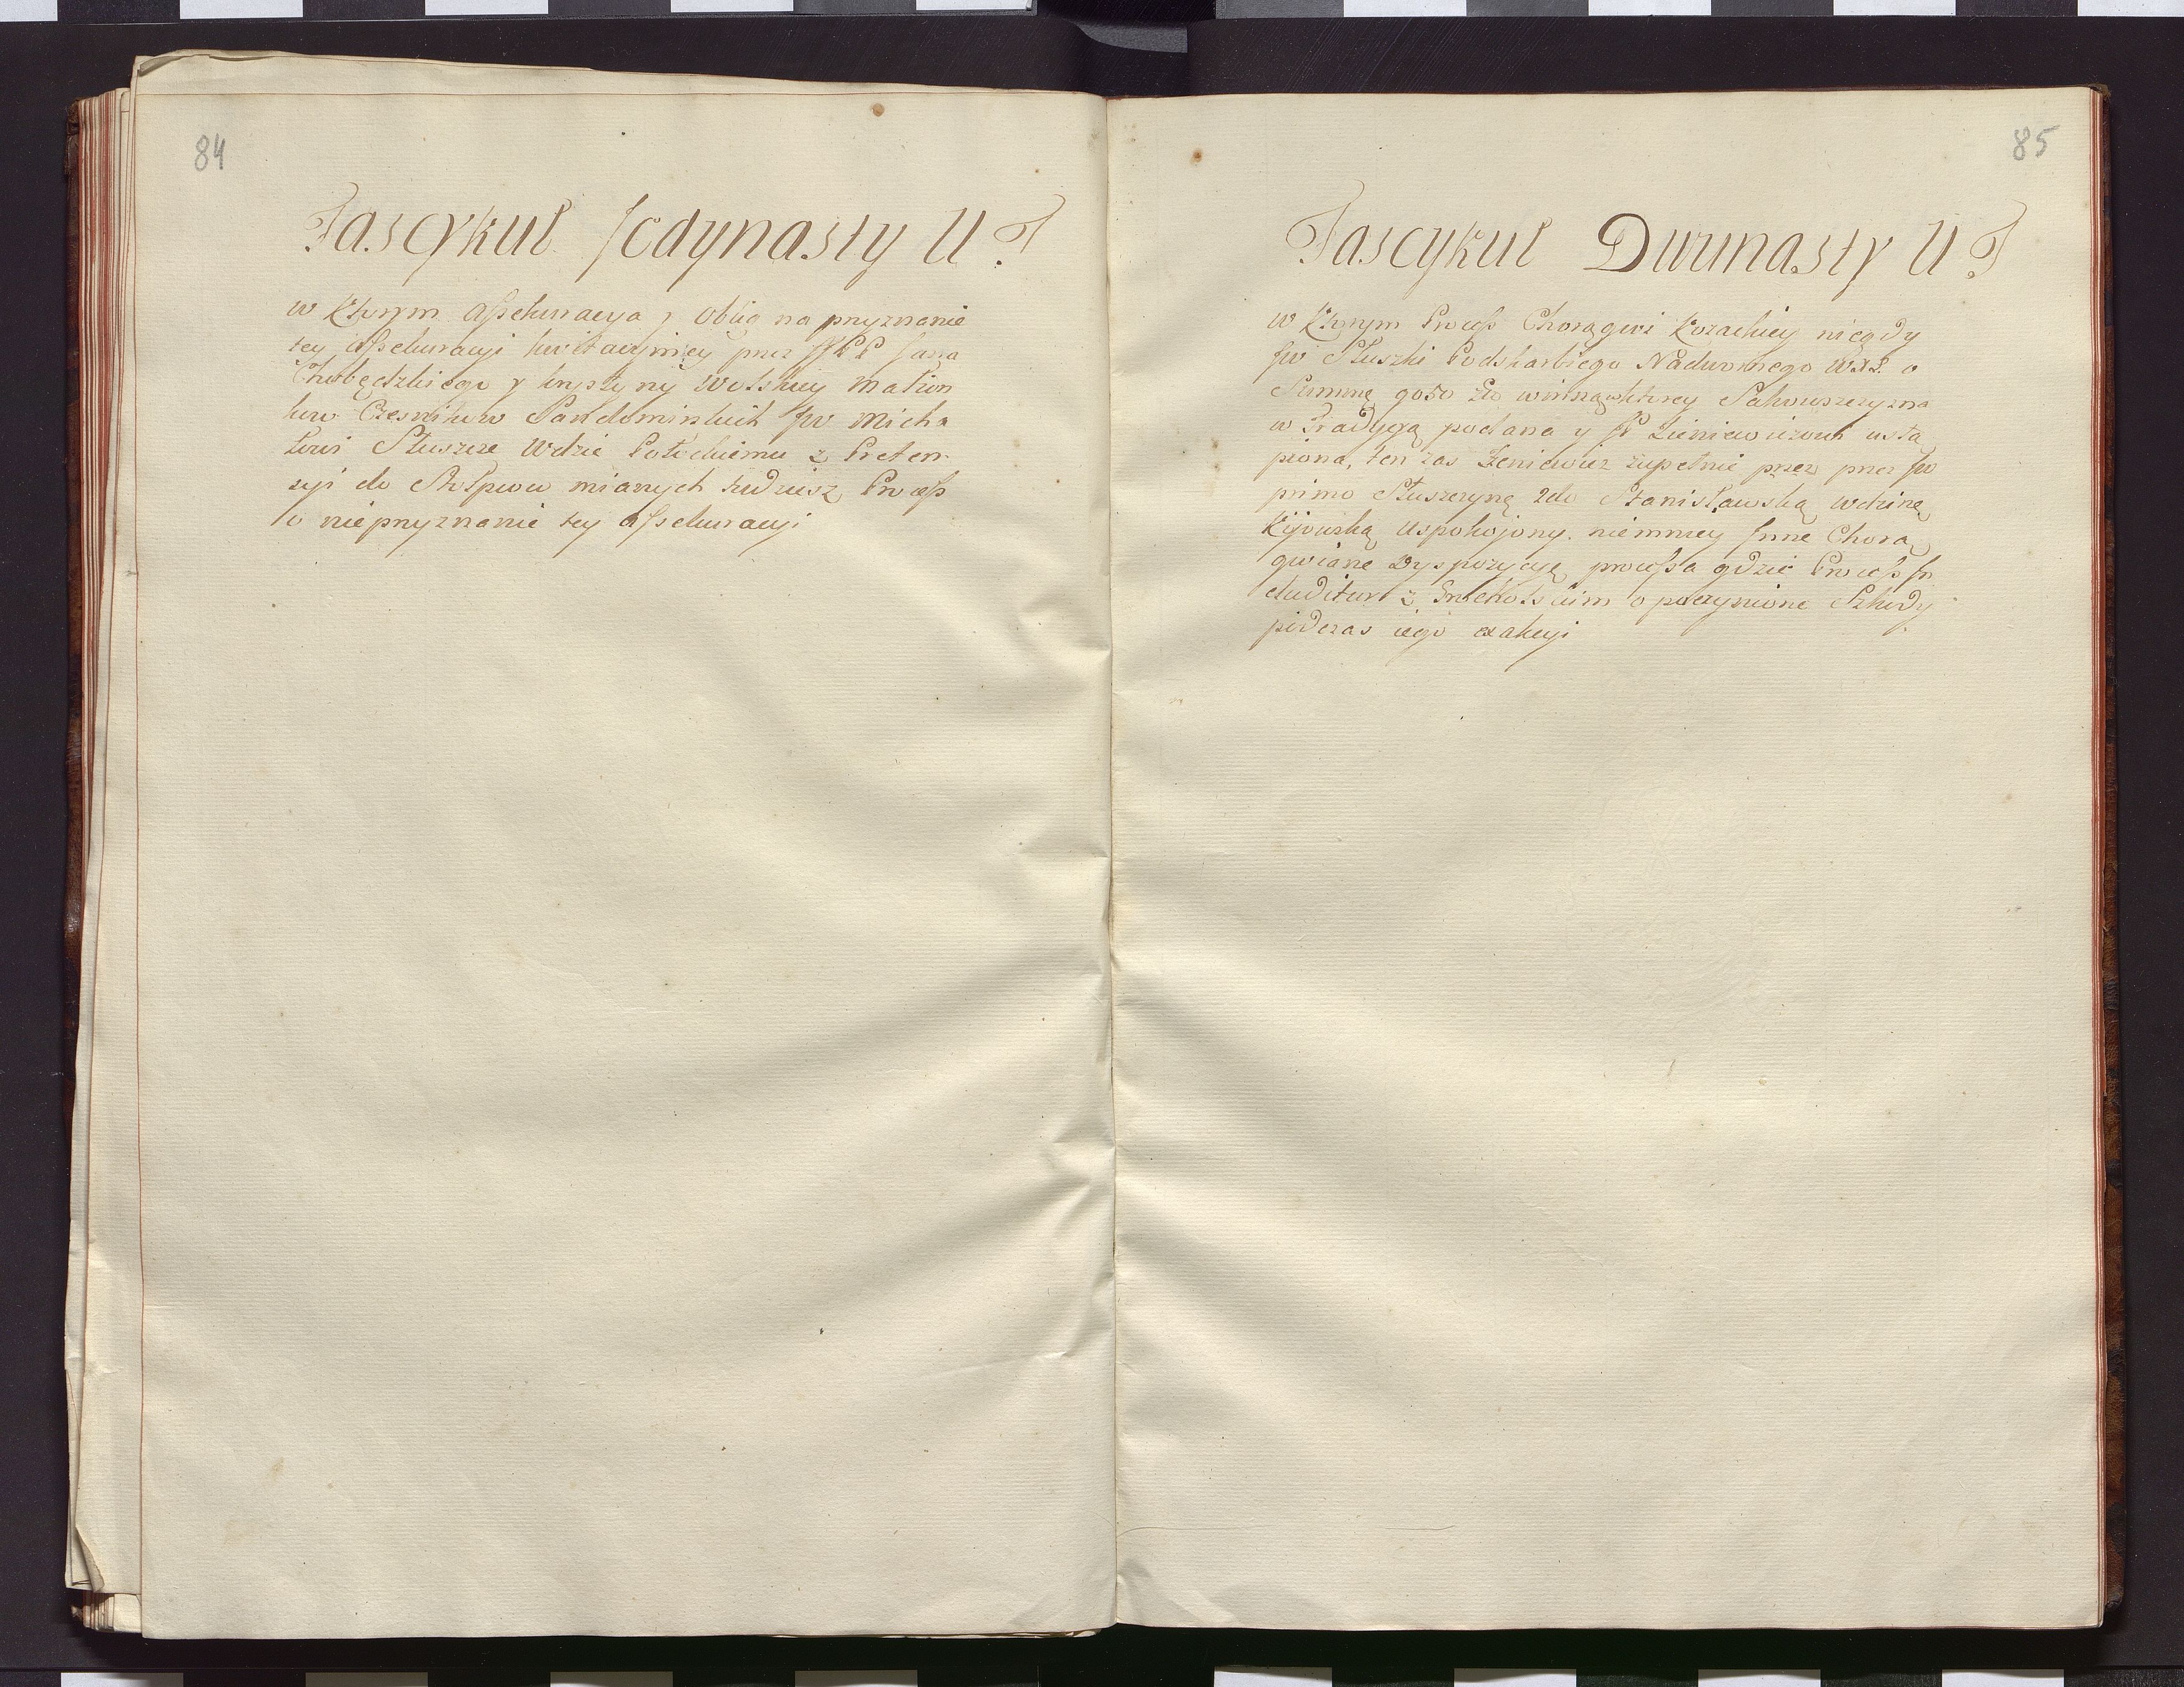 84
Fascykuł Jedynasty U. F
w Którym Assekuracya y oblig na przyznanie
tey Assekuracyi kwitacyiney przez JJPP Jana
Chobędzkiego y krystyny Wolskiey Małżon
kow Czesnikow Sandomirskich Jw Micha
łowi Słuszce Wdzie Połockiemu z Preten
syi do Stołpcow mianych tudziesz Process
o nieprzyznanie tey Assekuracyi
85
Fascykuł Dwunasty U F
w Którym Process Chorągwi Kozackiey niegdy
Jw Słuszki Podskarbiego Nadwornego WXL o
Summę 9050 Zło winną w ktorey Sakowszczyzna
w Tradycyą podana y JP Zieniewiczowi ustą
piona, ten zas Zeniewicz zupełnie przez przez Jw
primo Słuszczynę 2do Stanisławską Wdzinę
Kijowską Uspokojony. niemniey Jnne Chorą
gwiane Dyspozycye processa gdzie Process Jn
cluditur z o poczynione Szkody
podczas iego exakcyi